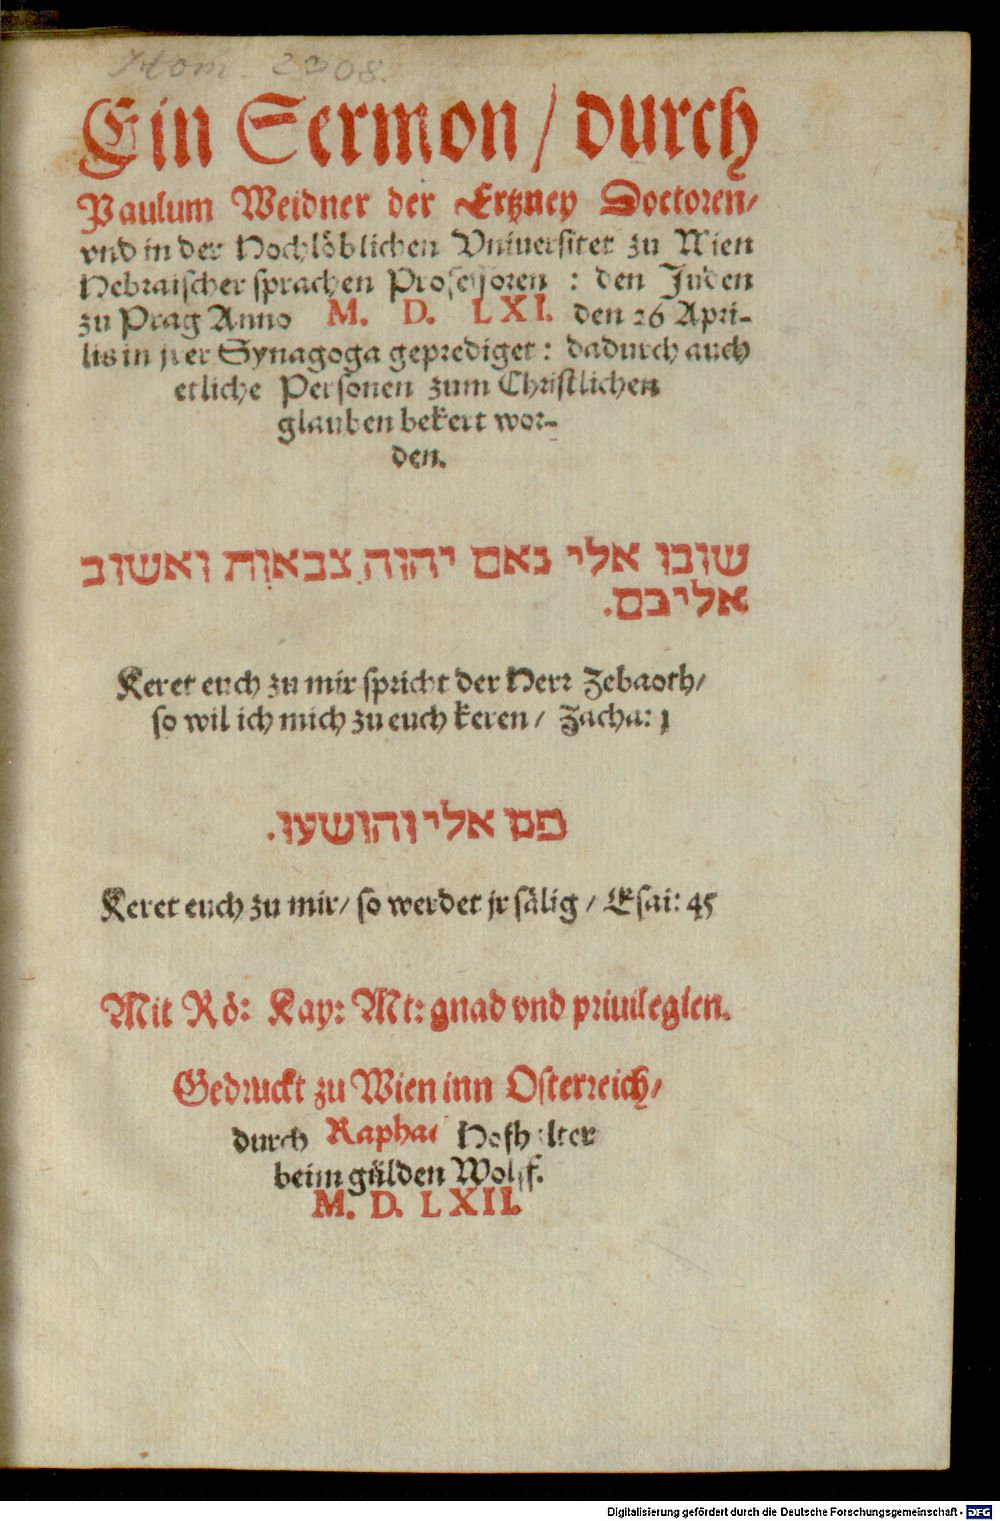 Hom. 2908.
Ein Sermon / durch
Paulum Weidner der Ertzney Doctoren /
vnd in der Hochlöblichen Vniuersitet zu Wien
Hebraischer sprachen Professoren : den Juden
zu Prag Anno M. D. LXI. den 26 Apri-
lis in jrer Synagoga geprediget : dadurch auch
etliche Personen zum Christlichen
glauben bekert wor-
den.
שובו אלי נאם יהוה צבאות ואשוב
אליכם.
Keret euch zu mir spricht der Herr Zebaoth /
so wil ich mich zu euch keren / Zacha: 1
פנו אלי והושעו.
Keret euch zu mir / so werdet jr sälig / Esai: 45
Mit Rö: Kay: Mt: gnad vnd priuilegien.
Gedruckt zu Wien inn Osterreich /
durch Raphael Hofhalter
beim gülden Wolff.
M. D. LXII.
Digitalisierung gefördert durch die Deutsche Forschungsgemeinschaft - DFG